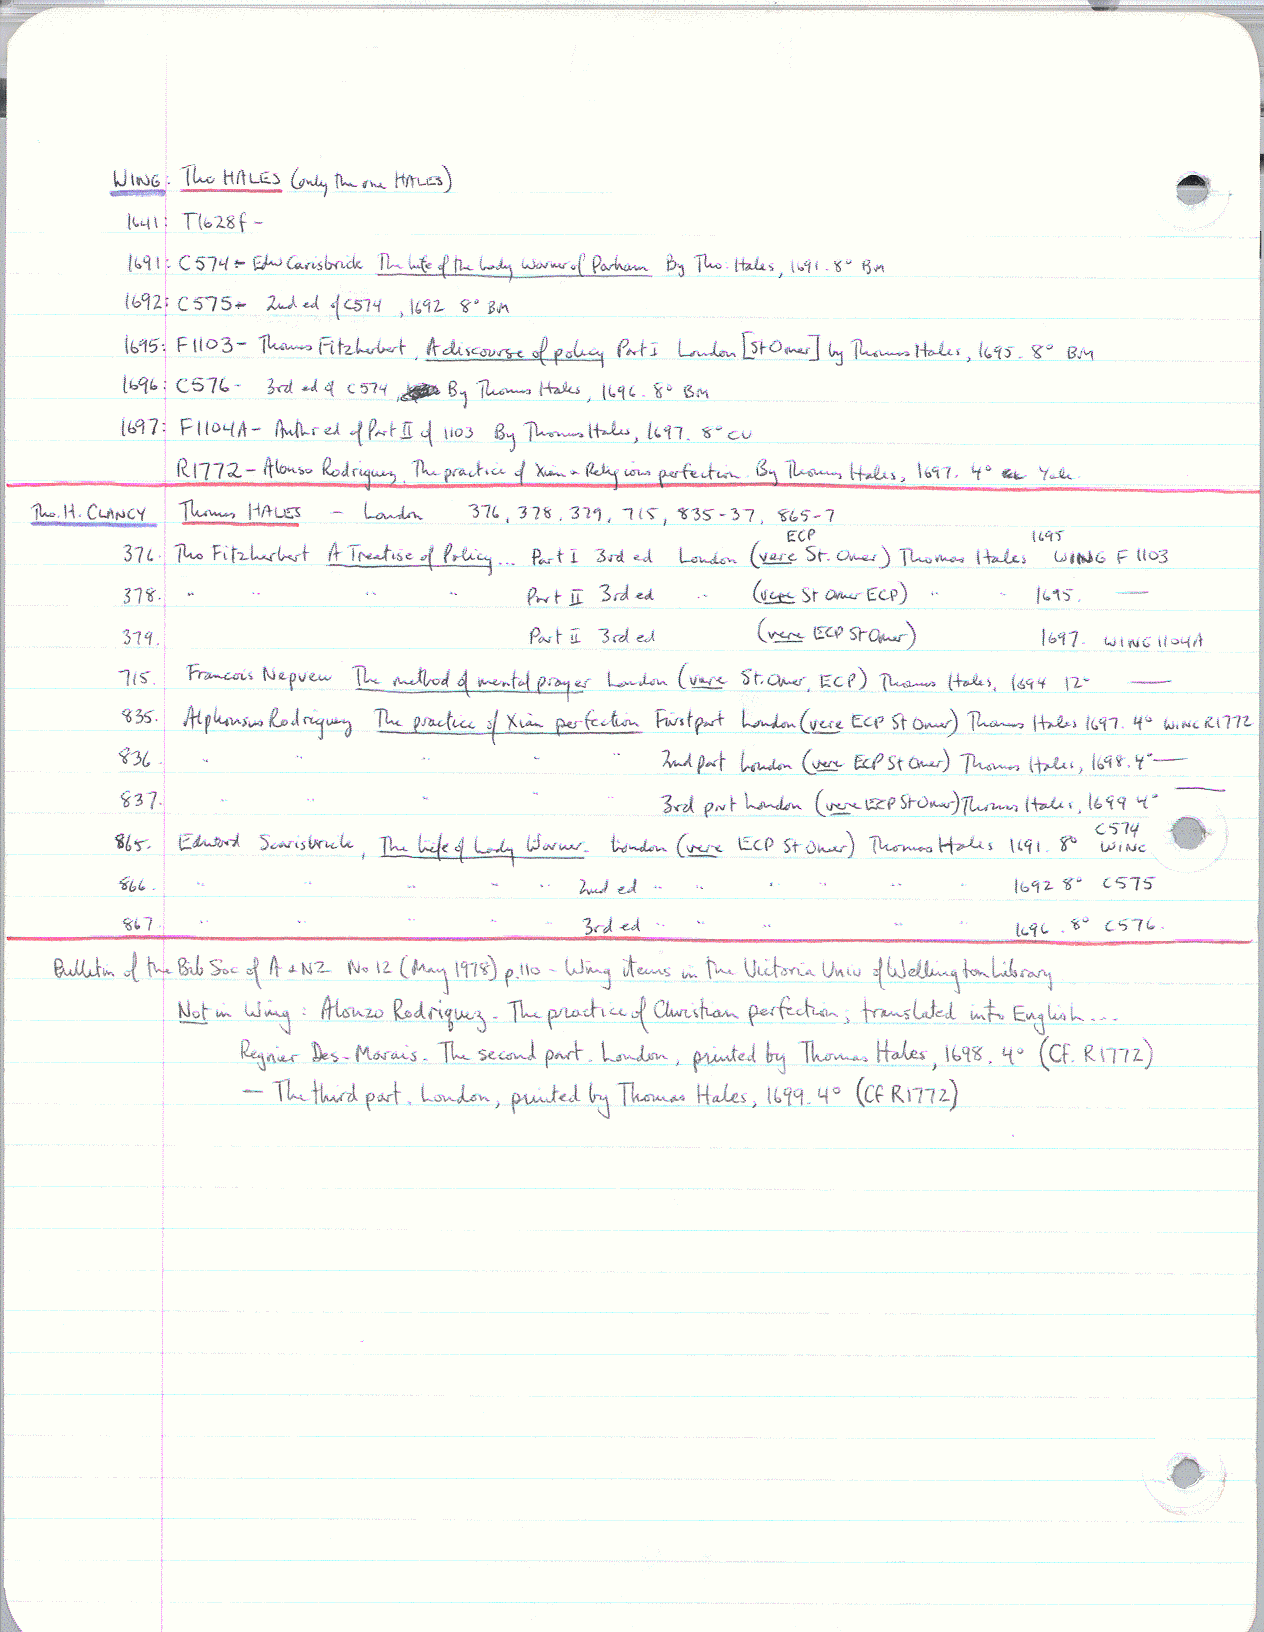 WING: Tho HALES (only the one HALES)
1641: T1628f -
1691: C574 - Edw Carisbrick The Life of the Lady Warner of Parham By Tho. Hales, 1691. 8° BM
1692: C575 - 2nd ed of C574, 1692 8° BM
1695: F1103 - Thomas Fitzherbert, A discourse of policy Part I London [St Omer] by Thomas Hales, 1695. 8° BM
1696: C576 - 3rd ed of C574, By Thomas Hales, 1696. 8° BM
1697: F1104A - Anthr ed of Part II of 1103 By Thomas Hales, 1697. 8° CU
R1772 - Alonso Rodriguez, The practice of Xian & Religious perfection. By Thomas Hales, 1697. 4° Yale.
Tho. H. CLANCY Thomas HALES - London 376, 378, 379, 715, 835-37, 865-7
376. Tho Fitzherbert A Treatise of Policy... Part I 3rd ed London (vere St. Omer ECP) Thomas Hales 1695 WING F1103
378. " " " " Part II 3rd ed " (vere St Omer ECP) " " 1695. —
379. Part II 3rd ed (vere ECP St Omer) 1697. WING 1104A
715. Francois Nepveu The method of mental prayer London (vere St. Omer, ECP) Thomas Hales, 1694 12° —
835. Alphonsus Rodriguez The practice of Xian perfection First part London (vere ECP St Omer) Thomas Hales 1697. 4° WING R1772
836. " " " " " 2nd part London (vere ECP St Omer) Thomas Hales, 1698. 4° —
837. " " " " " 3rd part London (vere ECP St Omer) Thomas Hales, 1699 4° —
865. Edward Scarisbrick, The Life of Lady Warner. London (vere ECP St Omer) Thomas Hales 1691. 8° C574 WING
866. " " " " " 2nd ed " " " " " " 1692 8° C575
867. " " " " " 3rd ed " " " " " 1696. 8° C576.
Bulletin of the Bib Soc of A & NZ No 12 (May 1978) p.110 - Wing items in the Victoria Univ of Wellington Library
Not in Wing: Alonzo Rodriquez. The practice of Christian perfection; translated into English...
Regnier Des-Marais. The second part. London, printed by Thomas Hales, 1698. 4° (Cf. R1772)
— The third part. London, printed by Thomas Hales, 1699. 4° (Cf R1772)